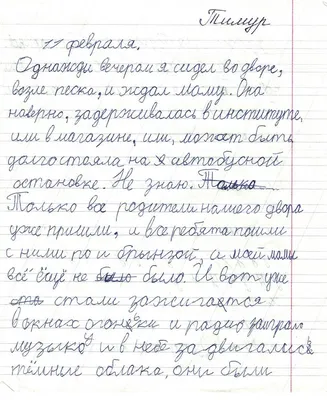 Тимур
11 февраля.
Однажди вечерам я сидел во дворе,
возле песка, и ждал маму. Она
наверно, задерживалась в институте,
или в магазине, или, может быть
долго стояла на автобусной
остановке. Не знаю. Только
Только все родители нашего двора
уже пришли, и все ребята пошли
с ними по и брынзой, а моей мами
всё ещё не было было. И вот уже
стали зажигатся
в окнах огоньки и радио заиграло
музыко и в небе задвигались
тёмные облака, они были